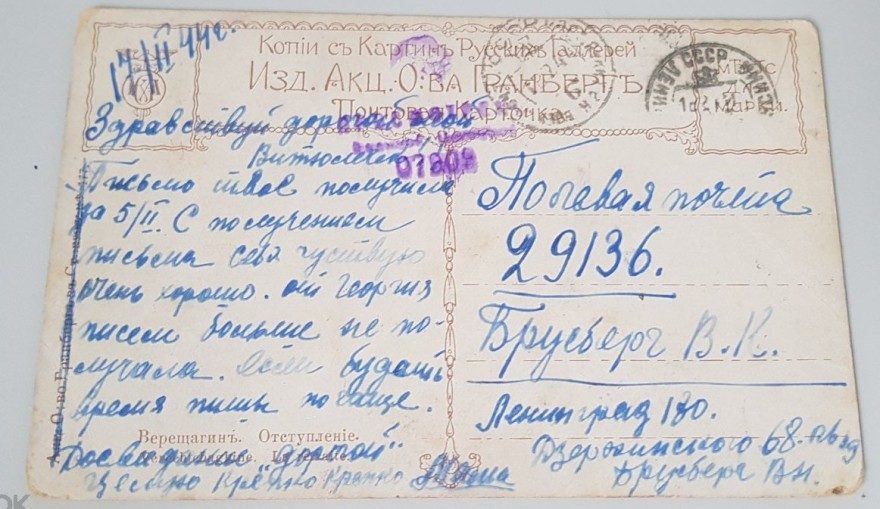 17/II 44 г.
Копiи съ Картинъ Русскихъ Галлерей
Изд. Акц. О-ва Гранбергъ
Почтовая Карточка
Мѣсто
для
марки.
СССР
07809
Здравствуй дорогой мой
Письмо твое получила
за 5/II. С получением
письма себя чуствую
очень хорошо. от Георгия
писем больше не по-
лучала. Если будет
время пиши почаще.
Верещагинъ. Отступленiе.
Досвидание дорогой
Целую Крепко Крепко
Полевая почта
29136.
Брусберг В.К.
Ленинград 180.
Дзержинского 68.
Брусберг